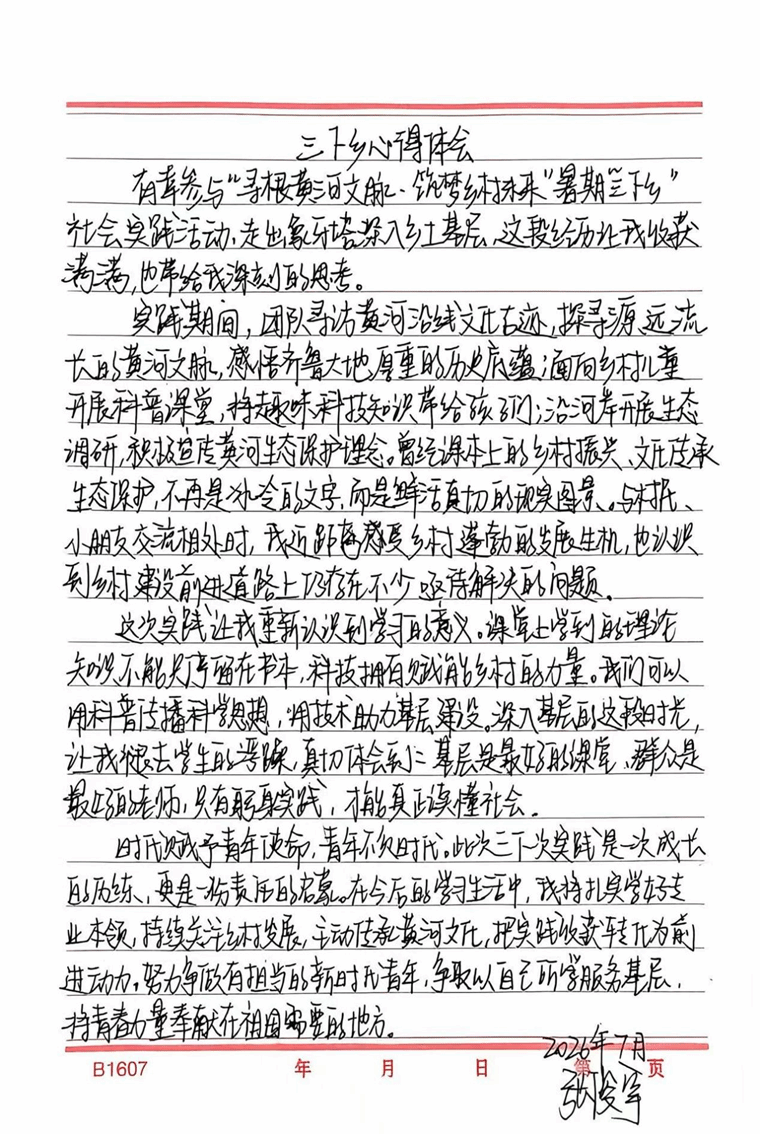 三下乡心得体会
有幸参与“寻根黄河文脉、筑梦乡村未来”暑期“三下乡”
社会实践活动,走出象牙塔深入乡土基层,这段经历让我收获
满满,也带给我深刻的思考。
实践期间,团队寻访黄河沿线文化古迹,探寻源远流
长的黄河文脉,感悟齐鲁大地厚重的历史底蕴;面向乡村儿童
开展科普课堂,将趣味科技知识带给孩子们;沿河岸开展生态
调研,积极宣传黄河生态保护理念。曾经课本上的乡村振兴、文化传承
生态保护,不再是冰冷的文字,而是鲜活真切的现实图景。与村民、
小朋友交流相处时,我近距离感受乡村蓬勃的发展生机,也认识
到乡村建设前进道路上仍存在不少亟待解决的问题。
这次实践让我重新认识到学习的意义。课堂上学到的理论
知识不能只停留在书本,科技拥有赋能乡村的力量。我们可以
用科普传播科学思想,用技术助力基层建设。深入基层的这段时光,
让我褪去学生的浮躁,真切体会到:基层是最好的课堂、群众是
最好的老师,只有躬身实践,才能真正读懂社会。
时代赋予青年使命,青年不负时代。此次三下次实践是一次成长
的历练、更是一份责任的启蒙。在今后的学习生活中,我将扎实学好专
业本领,持续关注乡村发展,主动传承黄河文化,把实践收获转化为前
进动力。努力争做有担当的新时代青年,争取以自己所学服务基层,
将青春力量奉献在祖国需要的地方。
2026年7月
B1607 年 月 日 第 页
张俊宇